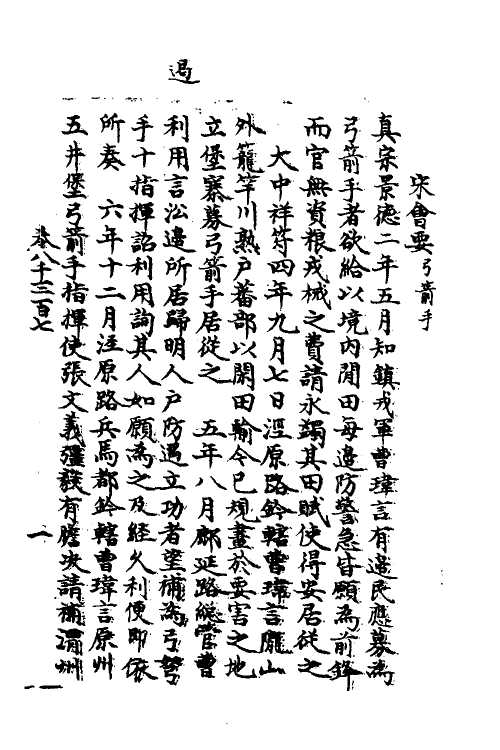 宋會要 弓箭手
真宗景德二年五月知鎮戎軍曹瑋言有邊民應募為
弓箭手者欲給以境內閒田每邊防警急皆願為前鋒
而官無資粮戎械之費請永蠲其田賦使得安居從之
大中祥符四年九月七日涇原路鈐轄曹瑋言隴山
外籠竿川熟戶蕃部以閑田輸令已規畫於要害之地
立堡寨募弓箭手居從之 五年八月鄜延路總管曹
利用言沿邊所居歸明人戶防遏立功者望補為弓弩
手十指揮詔利用詢其人如願為之及經久利便即依
所奏 六年十二月涇原路兵馬都鈐轄曹瑋言原州
五井堡弓箭手指揮使張文義彊毅有膽決請補渭州
卷八千三百七
一
遏